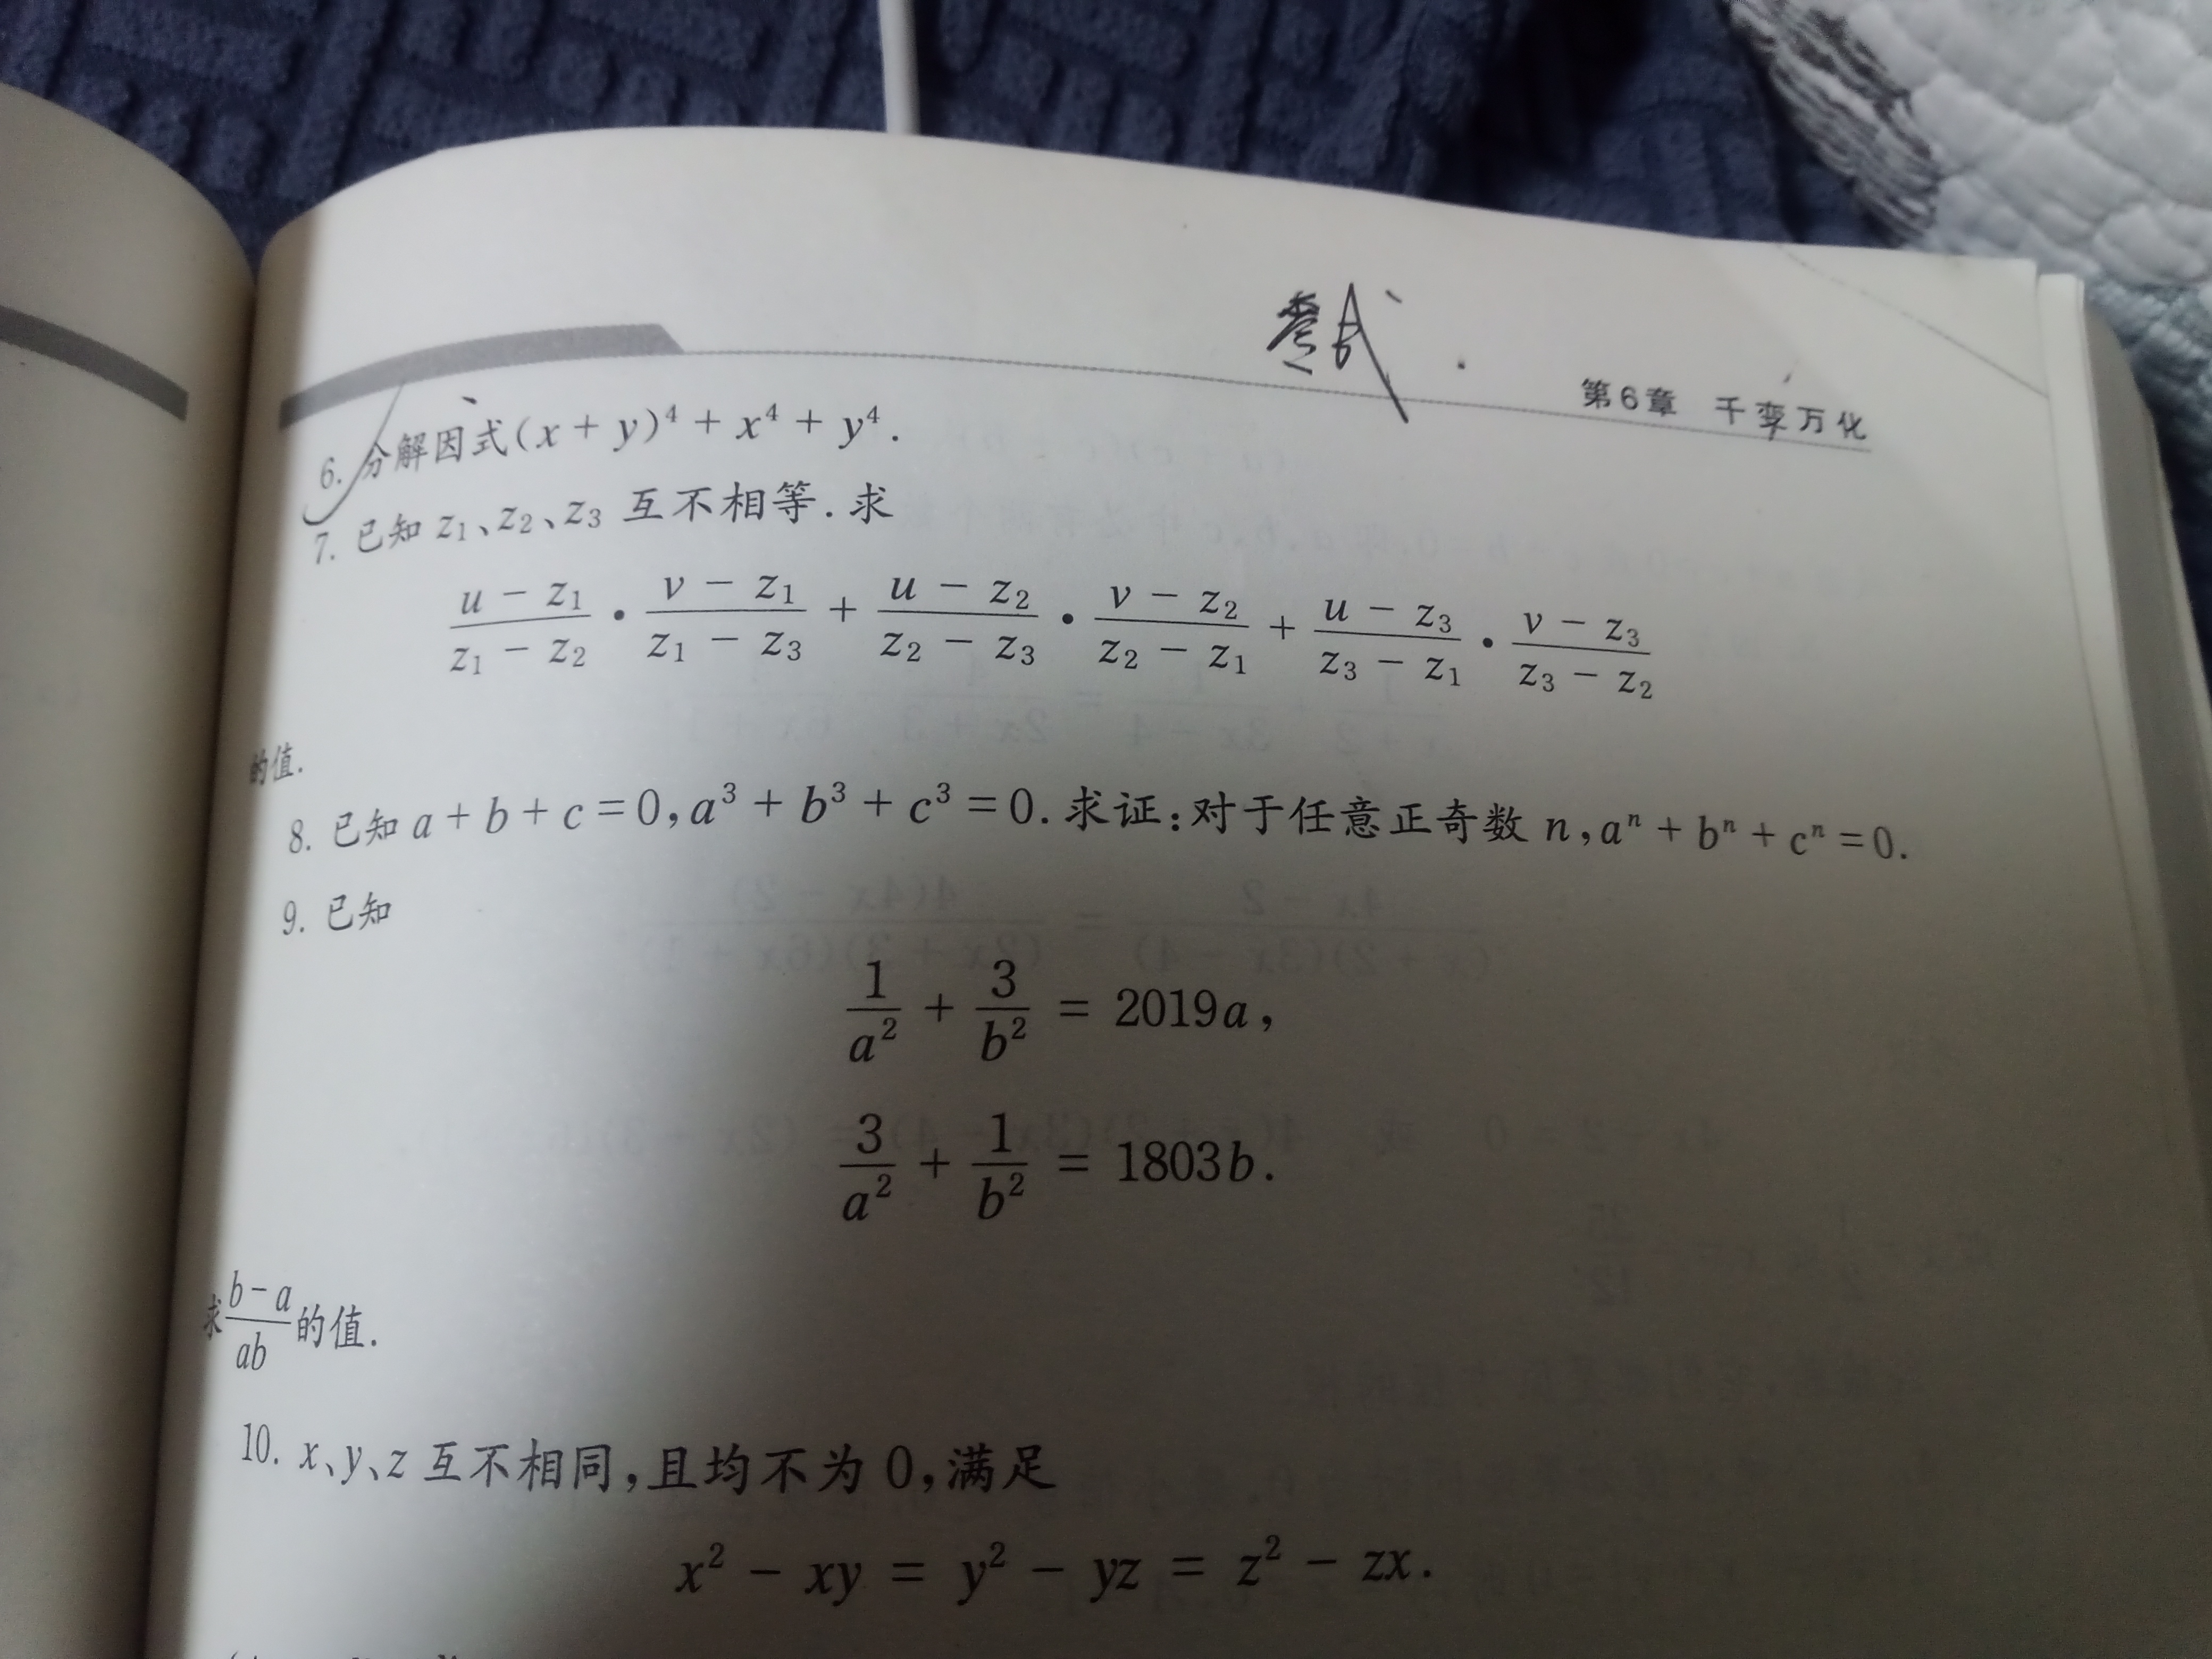 第6章 千变万化
6. 分解因式(x + y)⁴ + x⁴ + y⁴.
7. 已知 z₁、z₂、z₃ 互不相等. 求
(u − z₁)/(z₁ − z₂) · (v − z₁)/(z₁ − z₃) + (u − z₂)/(z₂ − z₃) · (v − z₂)/(z₂ − z₁) + (u − z₃)/(z₃ − z₁) · (v − z₃)/(z₃ − z₂)
的值.
8. 已知 a + b + c = 0, a³ + b³ + c³ = 0. 求证: 对于任意正奇数 n, aⁿ + bⁿ + cⁿ = 0.
9. 已知
1/a² + 3/b² = 2019a,
3/a² + 1/b² = 1803b.
求 (b − a)/ab 的值.
10. x、y、z 互不相同, 且均不为 0, 满足
x² − xy = y² − yz = z² − zx.